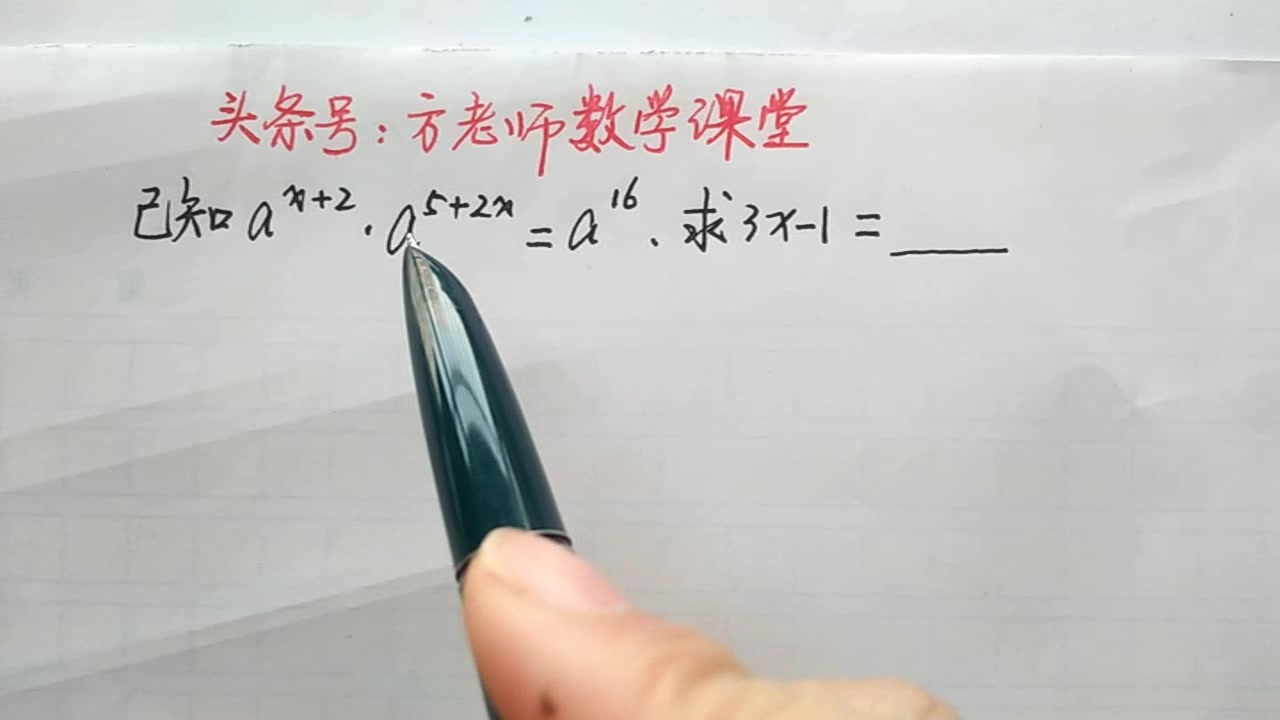 头条号:方老师数学课堂
已知 a^{x+2}·a^{5+2x}=a^{16}.求3x-1=____